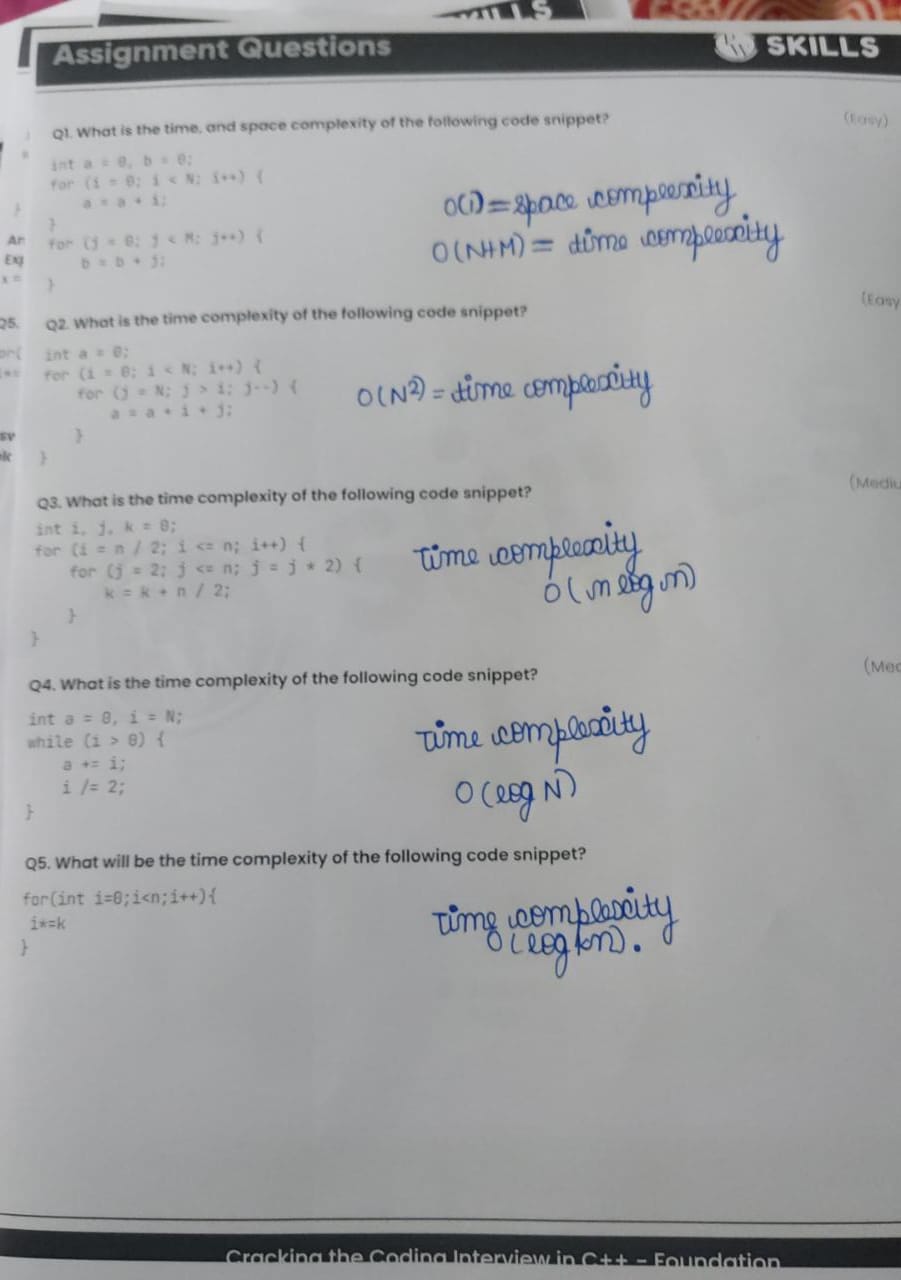 Assignment Questions
SKILLS
Q1. What is the time, and space complexity of the following code snippet?
(Easy)
int a = 0, b = 0;
for (i = 0; i < N; i++) {
a = a + i;
}
for (j = 0; j < M; j++) {
b = b + j;
}
O(1) = space complexity
O(N+M) = time complexity
Q2. What is the time complexity of the following code snippet?
(Easy
int a = 0;
for (i = 0; i < N; i++) {
for (j = N; j > i; j--) {
a = a + i + j;
}
}
O(N²) = time complexity
Q3. What is the time complexity of the following code snippet?
(Mediu
int i, j, k = 0;
for (i = n / 2; i <= n; i++) {
for (j = 2; j <= n; j = j * 2) {
k = k + n / 2;
}
}
Time complexity
O(n log n)
Q4. What is the time complexity of the following code snippet?
(Med
int a = 0, i = N;
while (i > 0) {
a += i;
i /= 2;
}
Time complexity
O(log N)
Q5. What will be the time complexity of the following code snippet?
for(int i=0;i<n;i++){
i*=k
}
Time complexity
O(log kn).
Cracking the Coding Interview in C++ - Foundation